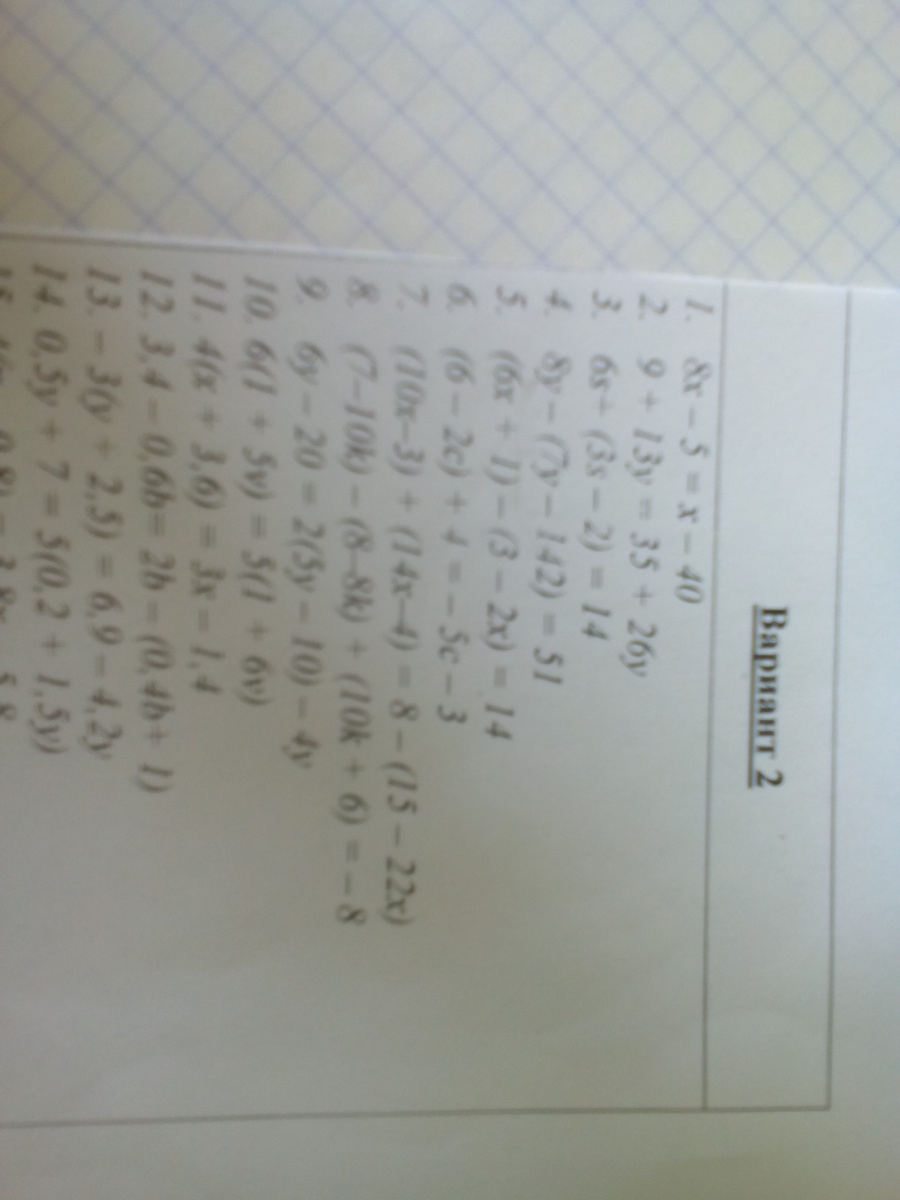 Вариант 2
1. 8x – 5 = x – 40
2. 9 + 13y = 35 + 26y
3. 6s + (3s – 2) = 14
4. 8y – (7y – 142) = 51
5. (6x + 1) – (3 – 2x) = 14
6. (6 – 2c) + 4 = – 5c – 3
7. (10x–3) + (14x–4) = 8 – (15 – 22x)
8. (7–10k) – (8–8k) + (10k + 6) = –8
9. 6y – 20 = 2(5y – 10) – 4y
10. 6(1 + 5v) = 5(1 + 6v)
11. 4(x + 3,6) = 3x – 1,4
12. 3,4 – 0,6b = 2b – (0,4b + 1)
13. – 3(y + 2,5) = 6,9 – 4,2y
14. 0,5y + 7 = 5(0,2 + 1,5y)